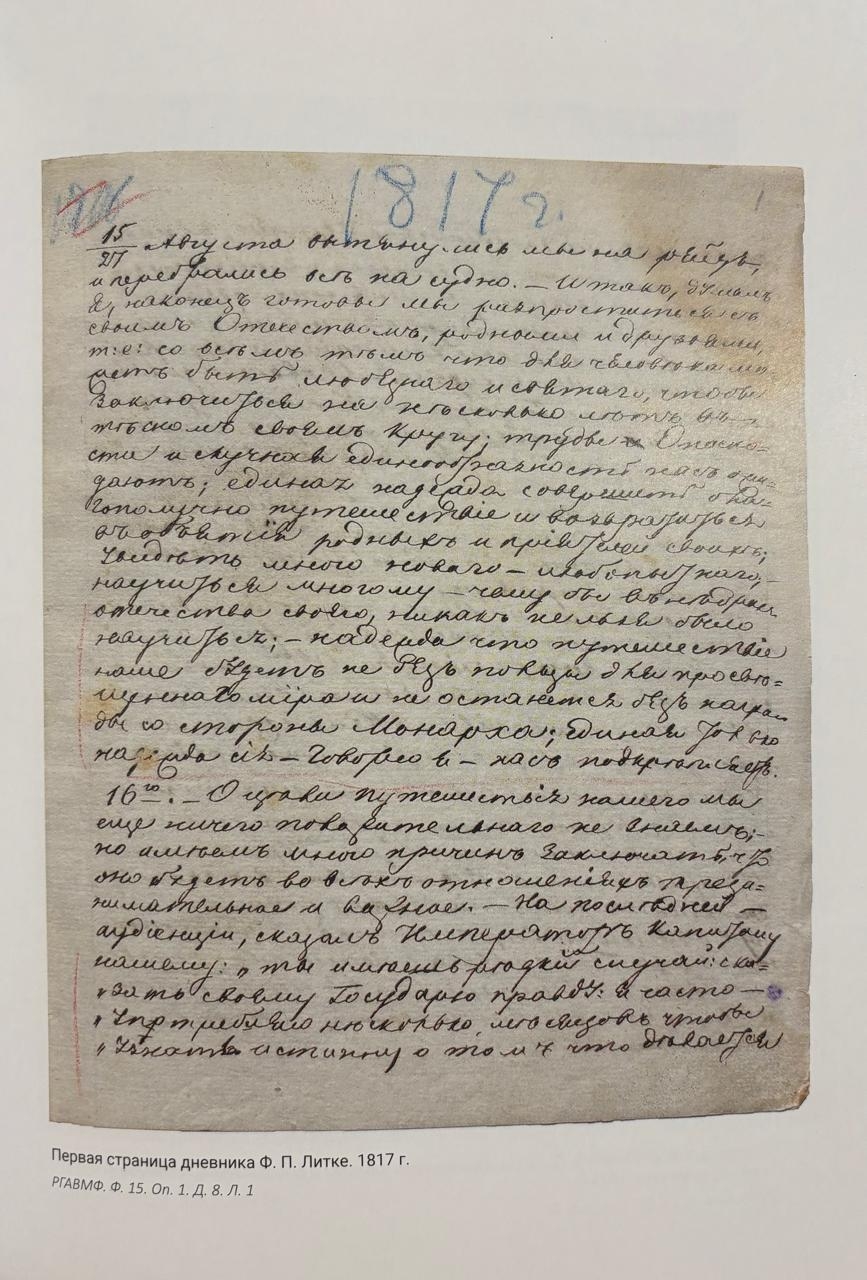 1817 г.
1
15/27 Августа вытянулись мы на рейдъ,
и перебрались всѣ на судно. – И такъ, думалъ
я, наконецъ готовы мы разпроститься съ
своимъ Отечествомъ, родными и друзьями,
т: е: со всѣмъ тѣмъ что для человѣка мо=
жетъ быть любезнаго и святаго, чтобы
Заключиться на нѣсколько лѣтъ въ
тѣсномъ своемъ кругу; труды и Опасно=
сти и скучная единообразность насъ ожи=
даютъ; единая надежда совершить бла=
гополучно путешествіе и возвратиться
въ объятія родныхъ и пріятелей своихъ;
увидѣть много новаго – любопытнаго; –
научиться многому – чему бы въ нѣдрахъ
отечества своего, никакъ нельзя было
научиться; – надежда что путешествіе
наше будетъ не безъ пользы для просвѣ=
щеннаго міра и не останется безъ награ=
ды со стороны Монарха; единая только
надежда сія – Говорю я – насъ подкрѣпляетъ.
16го. – О цѣли путешествія нашего мы
еще ничего положительнаго не знаемъ; –
но имѣемъ много причинъ Заключать, что
оно будетъ во всѣхъ отношеніяхъ преза=
нимательное и важное. – На последней –
аудіенціи, сказалъ Императоръ Капитану
нашему: „ ты имѣешь рѣдкій случай: ска=
„ зать своему Государю правду: я часто –
„ употребляю нѣсколько мѣсяцовъ чтобы
„ узнать истинну о томъ что дѣлается
Первая страница дневника Ф. П. Литке. 1817 г.
РГАВМФ. Ф. 15. Оп. 1. Д. 8. Л. 1